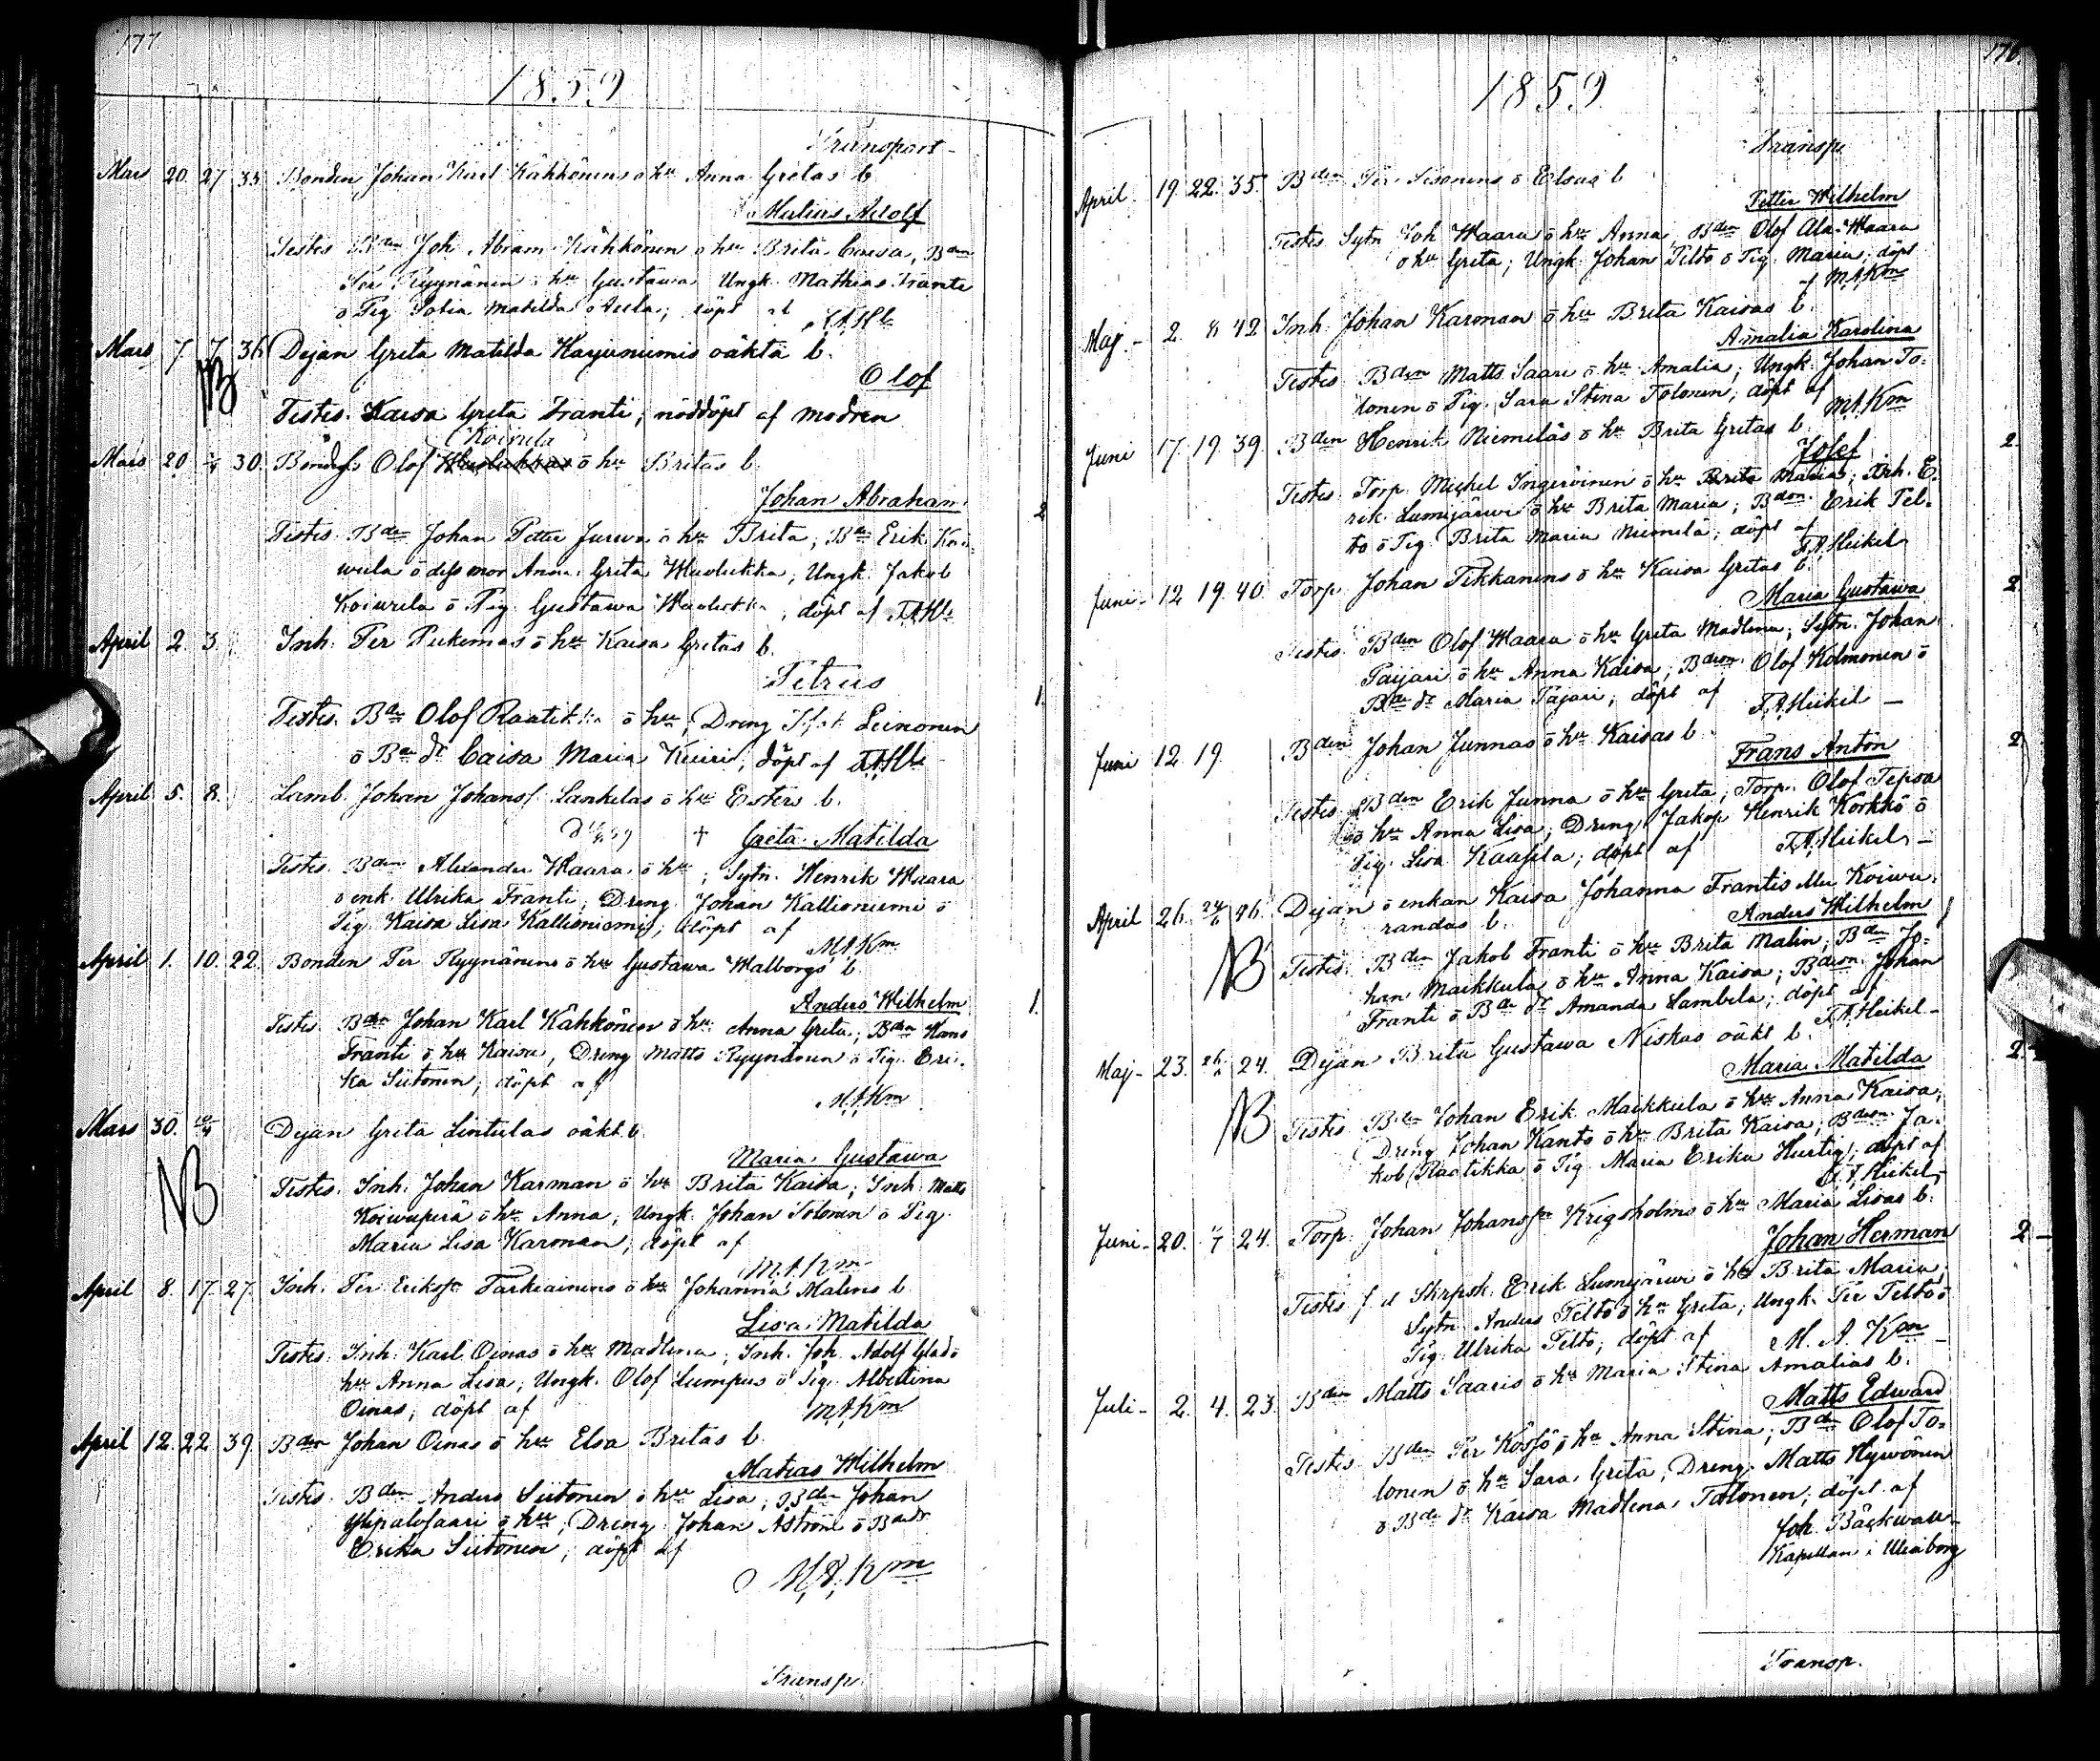 177.
1859
Transport
Mars 20. 27 33 Bonden Johan Karl Kähkönens o hu Anna Gretas b.
Adolf
Testes. Bden Joh Abram Kähkönen o hu Brita Bden
Per Ryynänen o hu Gustawa Ungk. Mathias Franti
o Pig Sofia Matilda döpt
Mars 7 7 36 Dejan Greta Matilda Karjuniemis oäkta b.
NB
Olof
Testes. Kaisa Greta Franti, nöddöpt af modren
Koivula
Mars 20 30. Olof ō hu Britas b.
Johan Abraham 2
Testes. Bden Johan Petter Juriva ō hu Brita, Bde Erik Koi-
wula ō dess mor Anna Greta Ungk. Jakob
ō Pig. Gustawa döpt af
April 2. 3 Inh. Per Pukemas ō hu Kaisa Gretas b.
Petrus 1.
Testes. Bde Olof Raatikka ō hu, Dreng Leinonen
ō Bde dr Caisa Maria döpt af
April 5. 8. Lamb. Johan Johanss. ō hu Esters b.
† Greta Matilda
Testes. Bden Alexander Waara ō hu, Sytn. Henrik Waara
o enk. Ulrika Franti, Dreng Johan Kallioniemi ō
Pig Kaisa Lisa Kallioniemi, döpt af
M.A.Km
April 1. 10. 22. Bonden Per Ryynänens ō hu Gustawa Walborgs b.
Anders Wilhelm 1.
Testes. Bden Johan Karl Kähkönen ō hu Anna Greta, Bden Hans
Franti ō hu Kaisa, Dreng Matts Ryynänen ō Pig. Eri-
ka Siitonen, döpt af
M.A.Km
Mars 30. 10/4 Dejan Greta Lintulas oäkt b.
NB
Maria Gustawa
Testes. Inh. Johan Karman ō hu Brita Kaisa, Inh. Matts
Koiwuperä ō hu Anna, Ungk. Johan Tolonen ō Pig.
Maria Lisa Karman, döpt af
M.A.Km
April 8. 17. 27. Inh. Per Erikss. Tarkiainens ō hu Johanna Malins b.
Lisa Matilda
Testes. Inh. Karl Oinas ō hu Madlena, Inh. Joh. Adolf Glad ō
hu Anna Lisa, Ungk. Olof Lumpus ō Pig. Albertina
Oinas, döpt af M.A.Km
April 12. 22. 39. Bden Johan Oinas ō hu Elsa Britas b.
Matias Wilhelm
Testes. Bden Anders Siitonen ō hu Lisa, Bden Johan
ō hu, Dreng Johan Åström ō Bde dr
Erika Siitonen, döpt af
M.A.Km
Transp.
178.
1859.
Transp.
April 19. 22. 35. Bden Per Sisonens ō Elsas b.
Petter Wilhelm
Testes Sytn Joh Waara ō hu Anna, Bden Olof Ala-Waara
o hu Greta, Ungk. Johan Pelto ō Pig. Maria, döpt
af M.A.Km
Maj - 2. 8 42 Inh. Johan Karman ō hu Brita Kaisas b.
Amalia Karolina
Testes Bden Matts Saari ō hu Amalia, Ungk. Johan To-
lonen ō Pig. Sara Stina Tolonen, döpt af
M.A.Km
Juni 17. 19. 39. Bden Henrik Niemeläs ō hu Brita Gretas b.
Josef 2
Testes. Torp. Mickel Ingeroinen ō hu Brita Maria, Inh. E-
rik Lumijärwi ō hu Brita Maria, Bdeson Erik Pel-
to ō Pig. Brita Maria Niemelä, döpt af
F.A. Heikel
Juni - 12 19. 40. Torp. Johan Tikkanens ō hu Kaisa Gretas b.
Maria Gustawa 2
Testes Bden Olof Waara ō hu Greta Madlena, Sytn. Johan
Paijari ō hu Anna Kaisa, Bdeson Olof Kolmonen ō
Bde dr Maria Pajari, döpt af F.A. Heikel -
Juni 12. 19. Bden Johan Junnas ō hu Kaisas b.
Frans Anton 2
Testes Bden Erik Junna ō hu Greta, Torp. Olof Tepsa
ō hu Anna Lisa, Dreng Jakop Henrik Körkkö ō
Pig. Lisa döpt af F.A. Heikel -
April 26. 26. Dejan ō enkan Kaisa Johanna Frantis Koiwu-
randas b. Anders Wilhelm 1
NB
Testes. Bden Jakob Franti ō hu Brita Malin, Bden Jo-
han Maikkula ō hu Anna Kaisa, Bdeson Johan
Franti ō Bde dr Amanda Lambela, döpt af
F.A. Heikel -
Maj - 23. 26/6 24. Dejan Brita Gustawa Niskas oäkt b.
Maria Matilda 2
NB
Testes Bden Johan Erik Maikkula ō hu Anna Kaisa,
Dreng Johan Kanto ō hu Brita Kaisa, Bdeson Ja-
kob Raatikka ō Pig. Maria Erika Hurtig, döpt af
F.A. Heikel
Juni - 20. 24. Torp. Johan Johanss. Krigsholms ō hu Maria Lisas b.
Johan Herman 2
Testes f d Skrpsk. Erik Lumijärwi ō hu Brita Maria,
Sytn. Anders Pelto ō hu Greta, Ungk. Per Pelto ō
Pig. Ulrika Pelto, döpt af M. A. Km
Juli - 2. 4. 23. Bden Matts Saaris ō hu Maria Stina Amalias b.
Matts Edward
Testes. Bden Per ō hu Anna Stina, Bde Olof To-
lonen ō hu Sara Greta, Dreng. Matts Hywönen
ō Bde dr Kaisa Madlena Tolonen, döpt af
Joh. Bäckwall
Kapellan i Uleåborg
Transp.